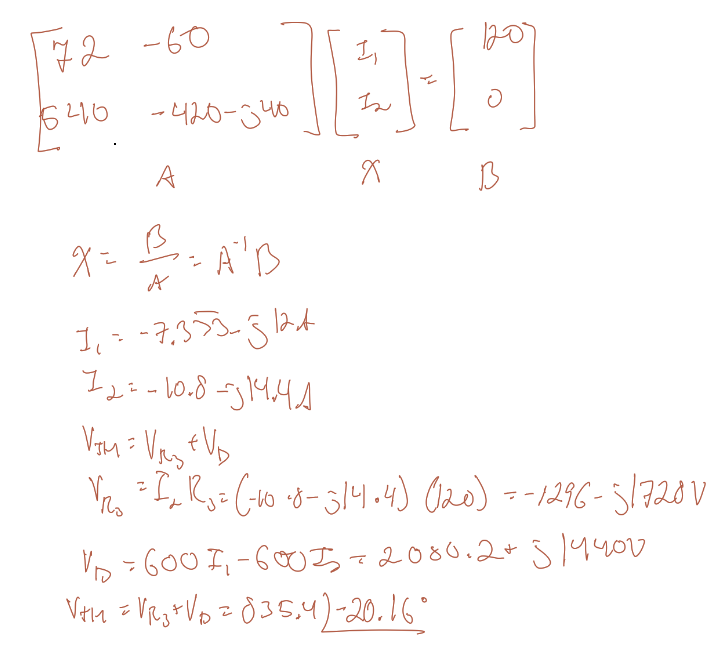 [72 -60] [I₁] = [120]
[5410 -420-j40] [I₂] [0]
A X B
X = B/A = A⁻¹B
I₁ = -7.353-j12A
I₂ = -10.8-j14.4A
V_TM = V_R₃ + V_D
V_R₃ = I₂R₃ = (-10.8-j14.4)(120) = -1296-j1728V
V_D = 600I₁-600I₂ = 2080.2+j1440V
V_TH = V_R₃+V_D = 835.4)-20.16°